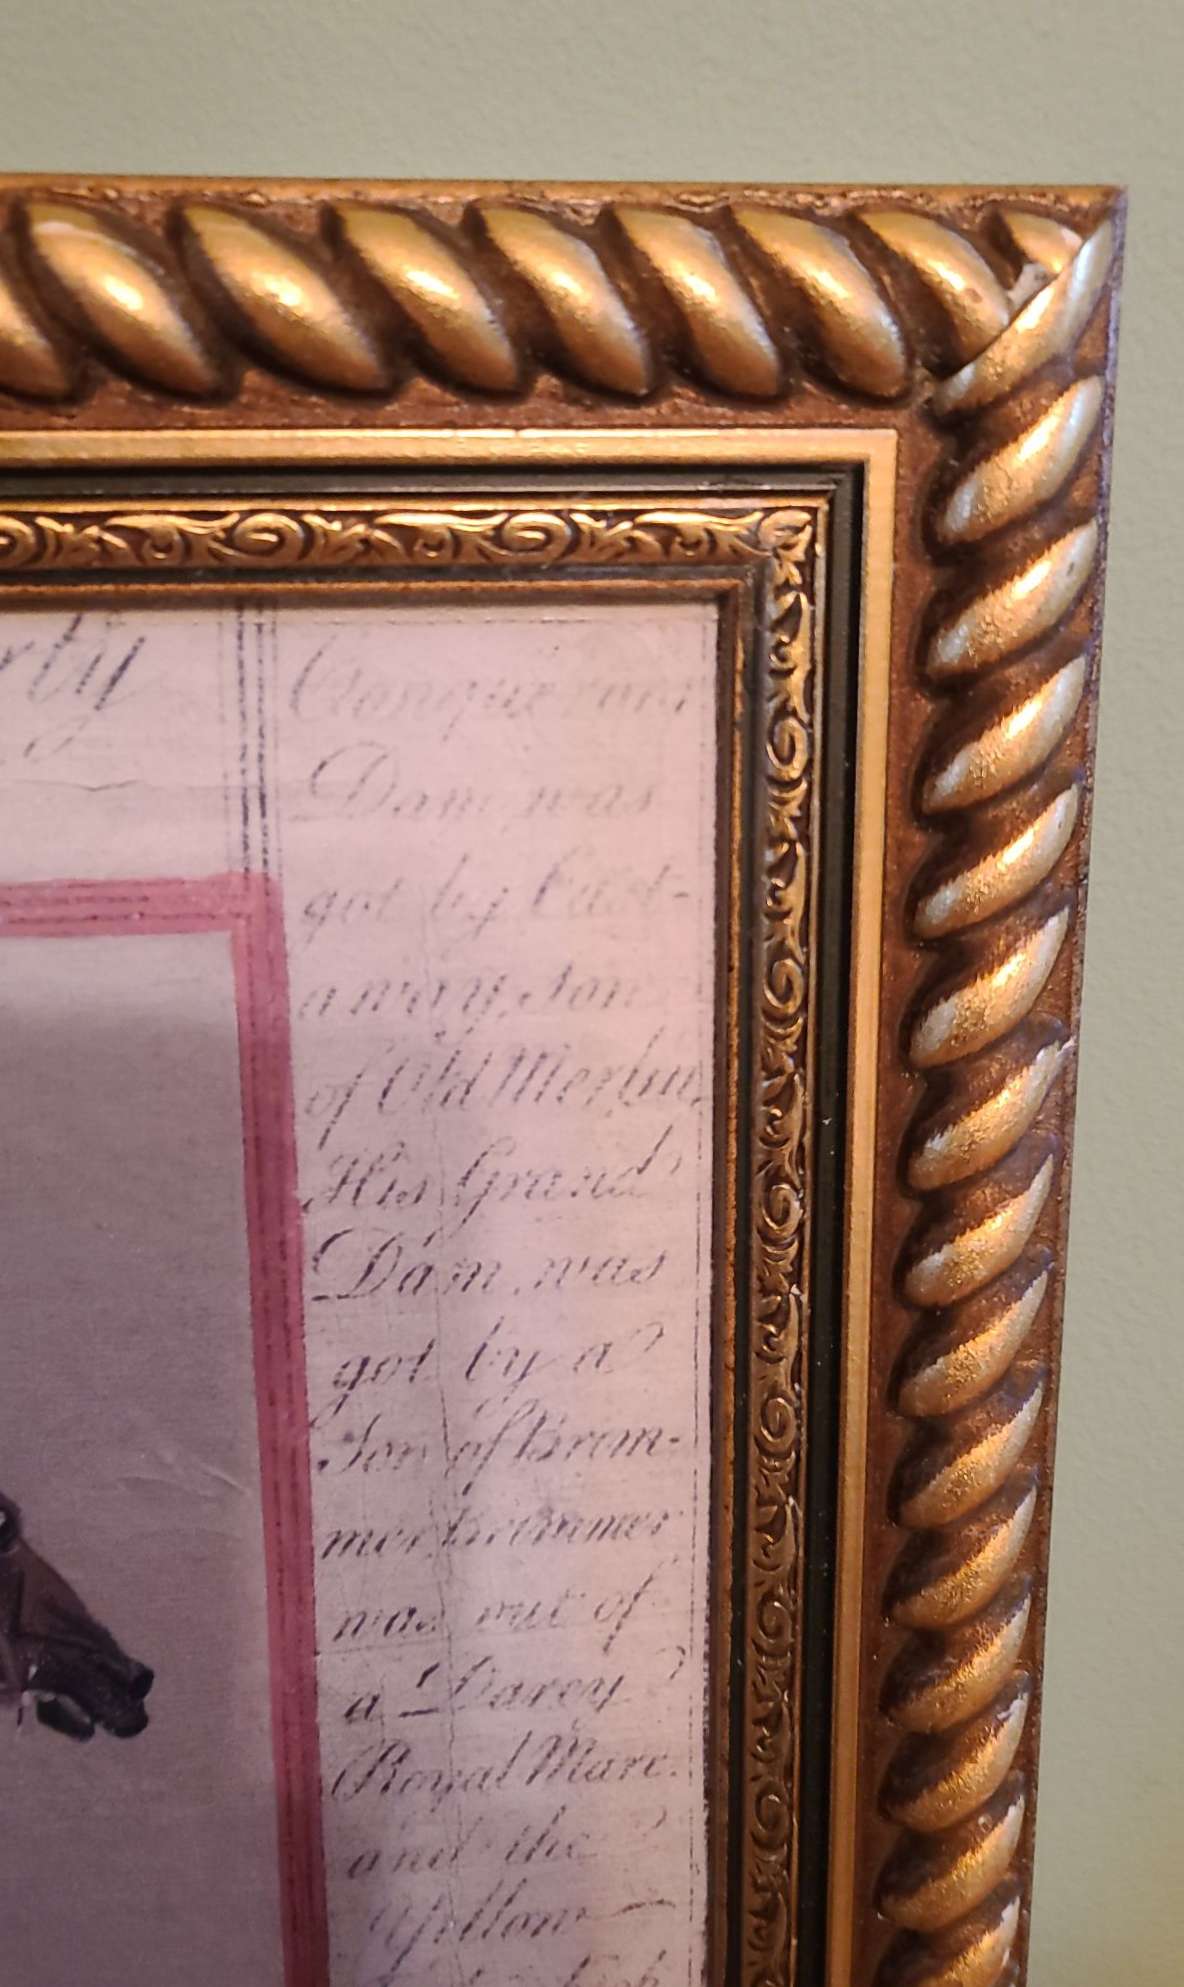 rty
Conquerors
Dam was
got by Cast-
away, Son
of Old Merlin,
His Grand
Dam, was
got by a
Son of Brim-
mer, Brimmer
was out of
a Darcy
Royal Mare.
and the
Yellow